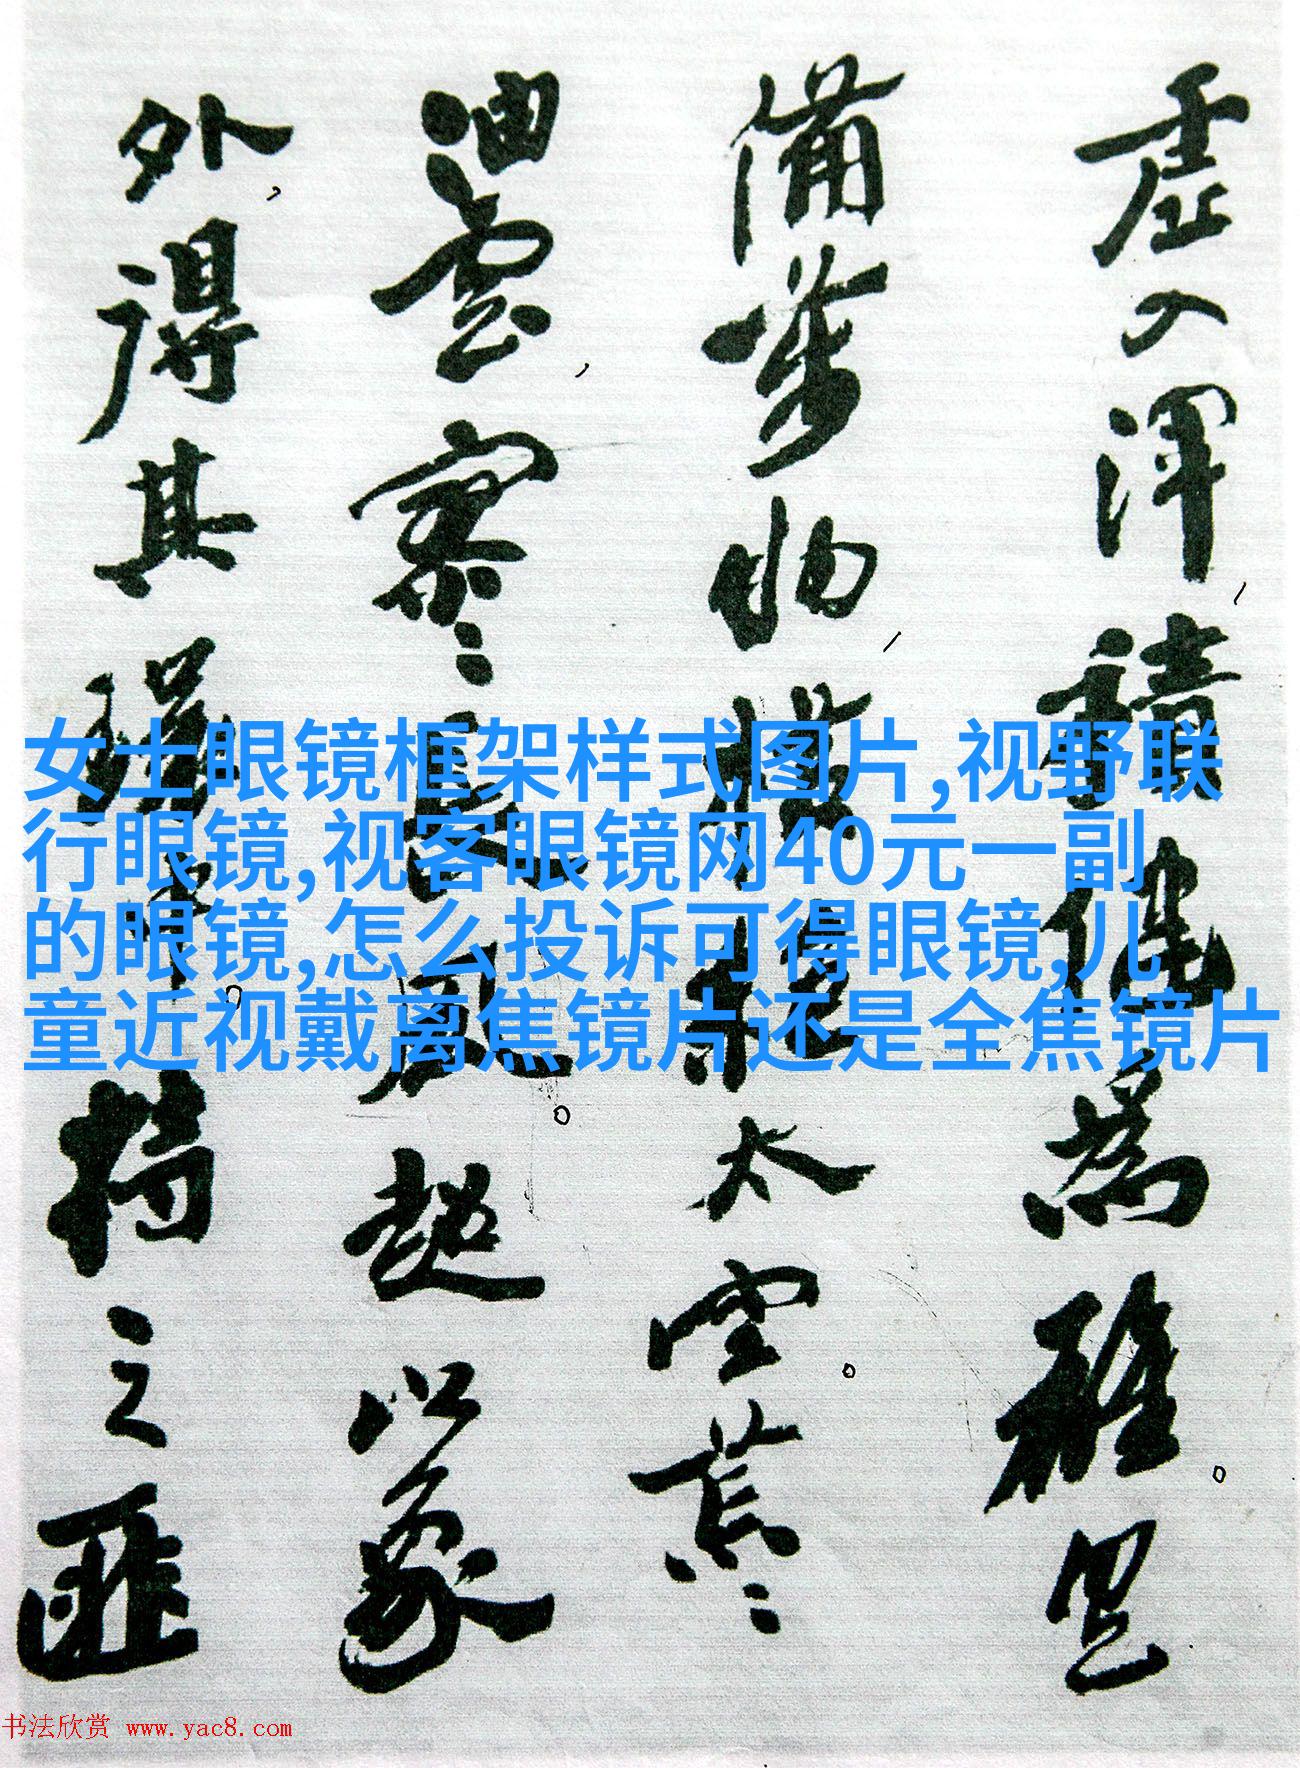 虚入渾,積健為雄。具
備萬物,橫絕太空。荒々
油雲,寥々長風。超以象
外,得其環中。持之匪
女士眼镜框架样式图片,视野联
行眼镜,视客眼镜网40元一副
的眼镜,怎么投诉可得眼镜,儿
童近视戴离焦镜片还是全焦镜片
书法欣赏 www.yac8.com